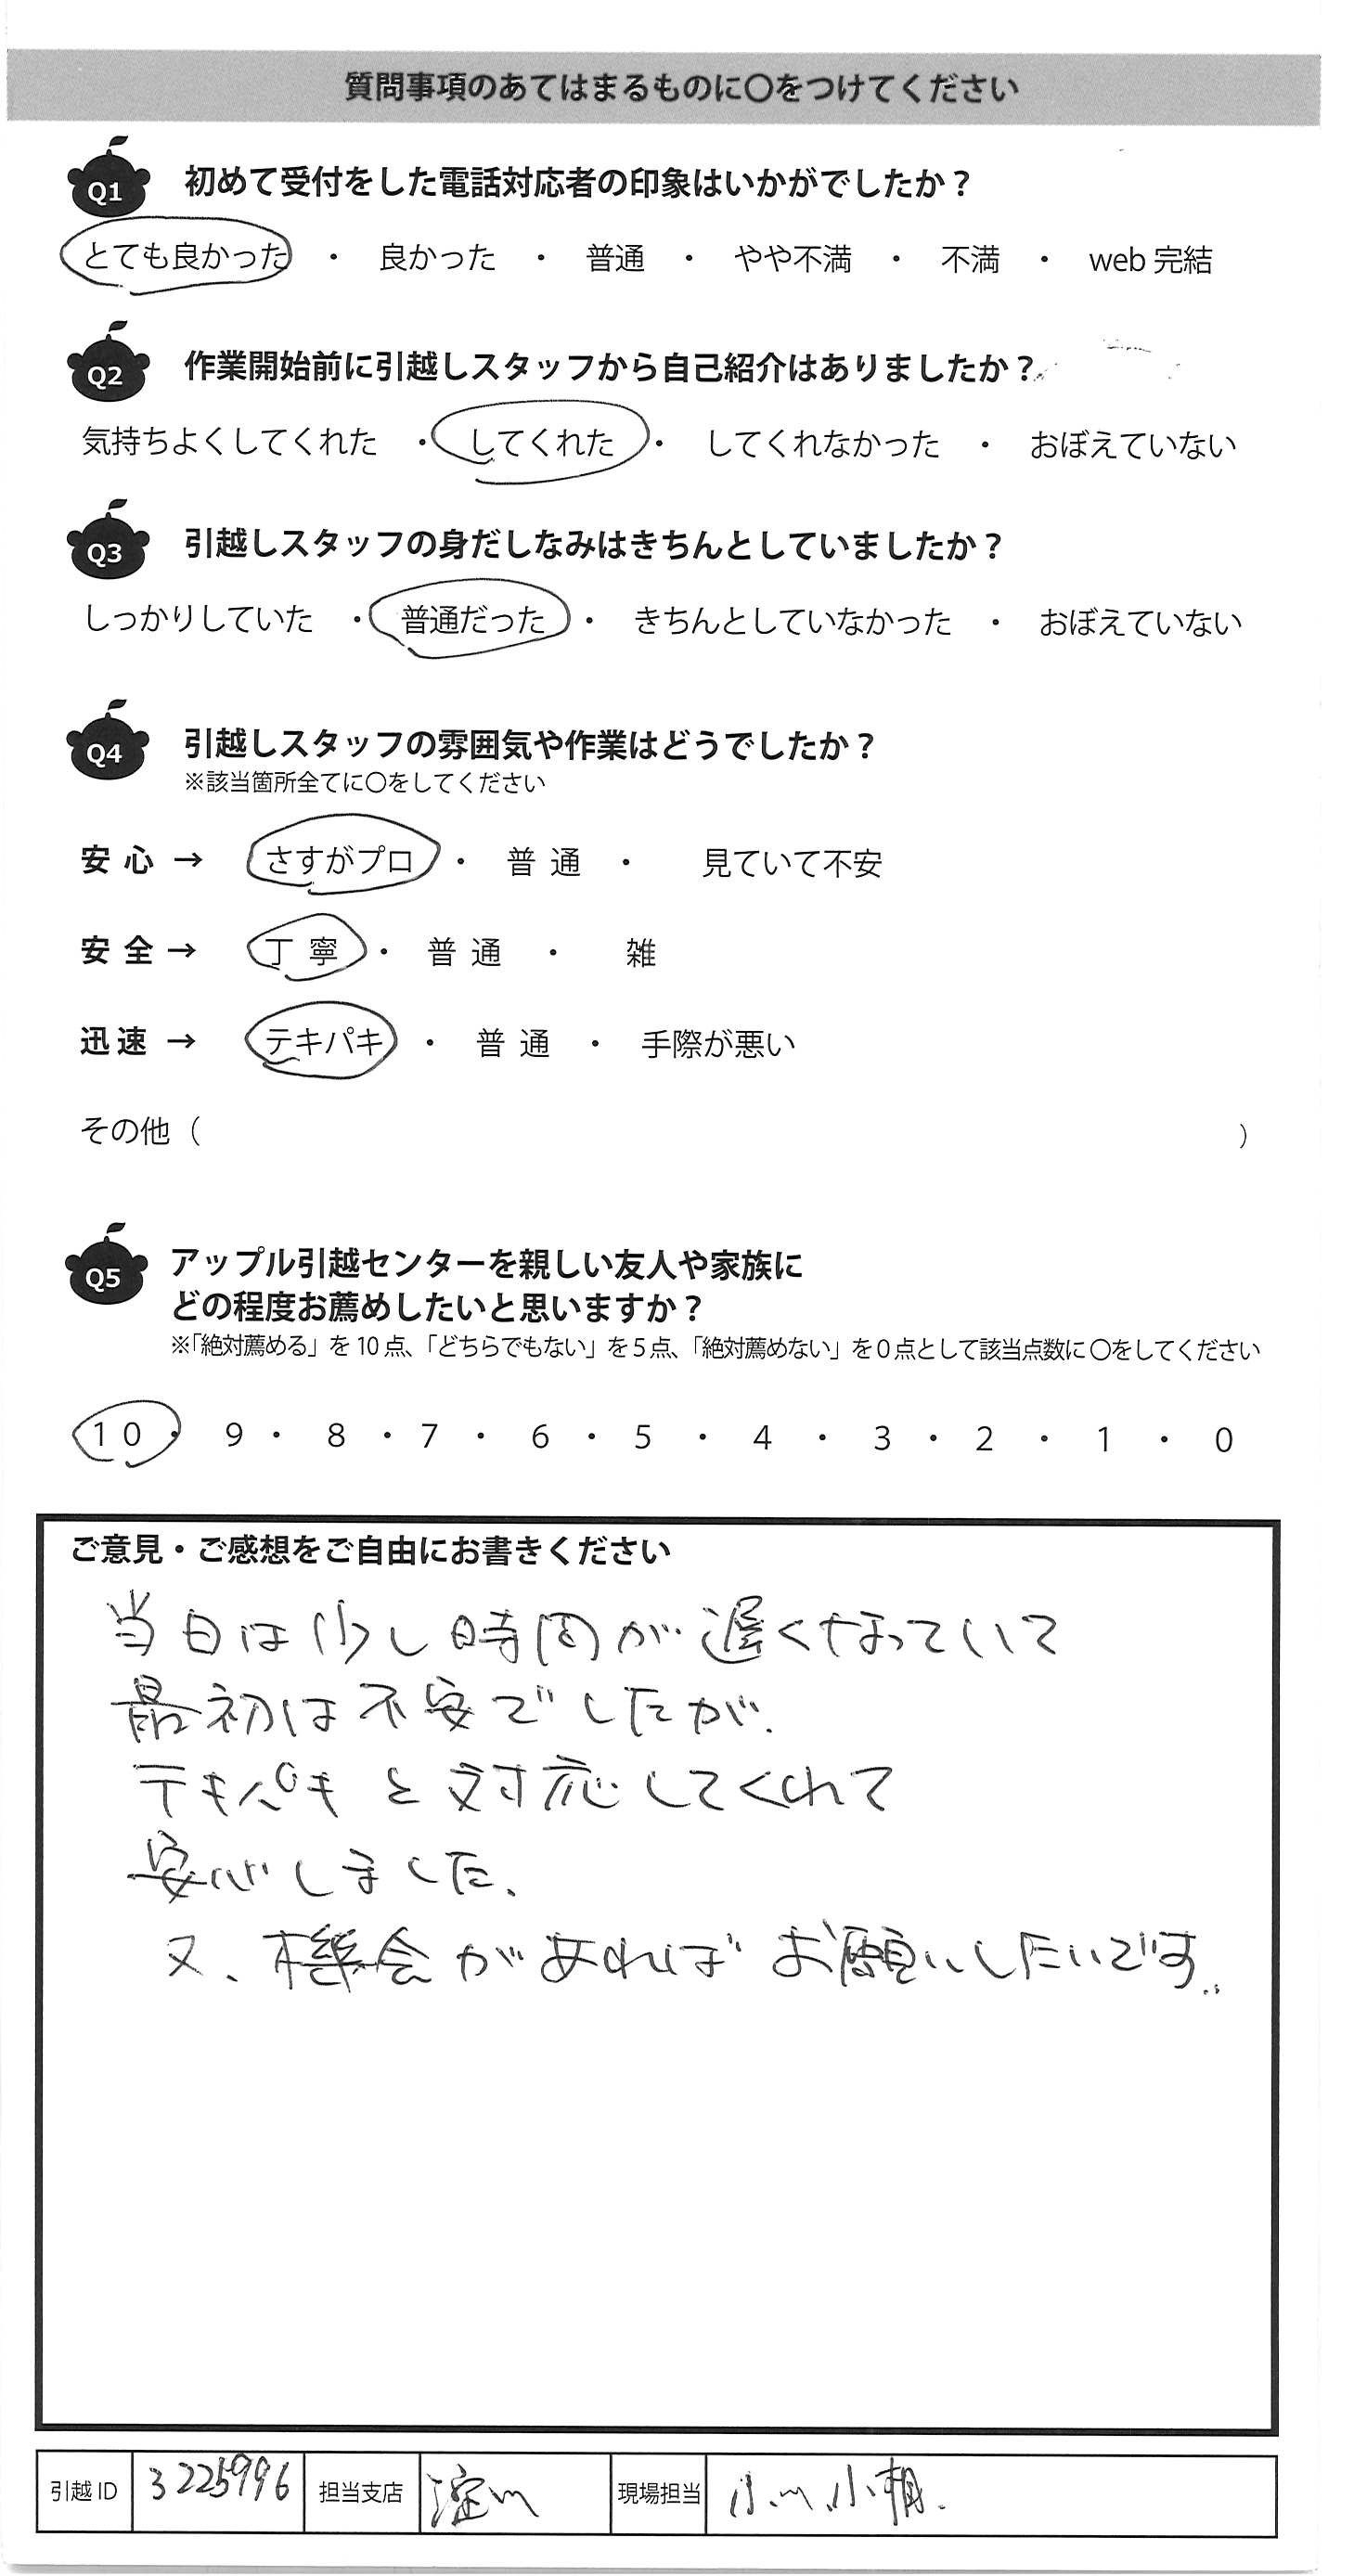 質問事項のあてはまるものに〇をつけてください
Q1 初めて受付をした電話対応者の印象はいかがでしたか？
とても良かった ・ 良かった ・ 普通 ・ やや不満 ・ 不満 ・ web 完結
Q2 作業開始前に引越しスタッフから自己紹介はありましたか？
気持ちよくしてくれた ・ してくれた ・ してくれなかった ・ おぼえていない
Q3 引越しスタッフの身だしなみはきちんとしていましたか？
しっかりしていた ・ 普通だった ・ きちんとしていなかった ・ おぼえていない
Q4 引越しスタッフの雰囲気や作業はどうでしたか？
※該当箇所全てに〇をしてください
安心 → さすがプロ ・ 普通 ・ 見ていて不安
安全 → 丁寧 ・ 普通 ・ 雑
迅速 → テキパキ ・ 普通 ・ 手際が悪い
その他（ ）
Q5 アップル引越センターを親しい友人や家族に
どの程度お薦めしたいと思いますか？
※「絶対薦める」を 10 点、「どちらでもない」を 5 点、「絶対薦めない」を 0 点として該当点数に〇をしてください
10 ・ 9 ・ 8 ・ 7 ・ 6 ・ 5 ・ 4 ・ 3 ・ 2 ・ 1 ・ 0
ご意見・ご感想をご自由にお書きください
当日は少し時間が遅くなっていて
最初は不安でしたが、
テキパキと対応してくれて
安心しました。
又、機会があればお願いしたいです。
引越 ID 3225996 担当支店 淀川 現場担当